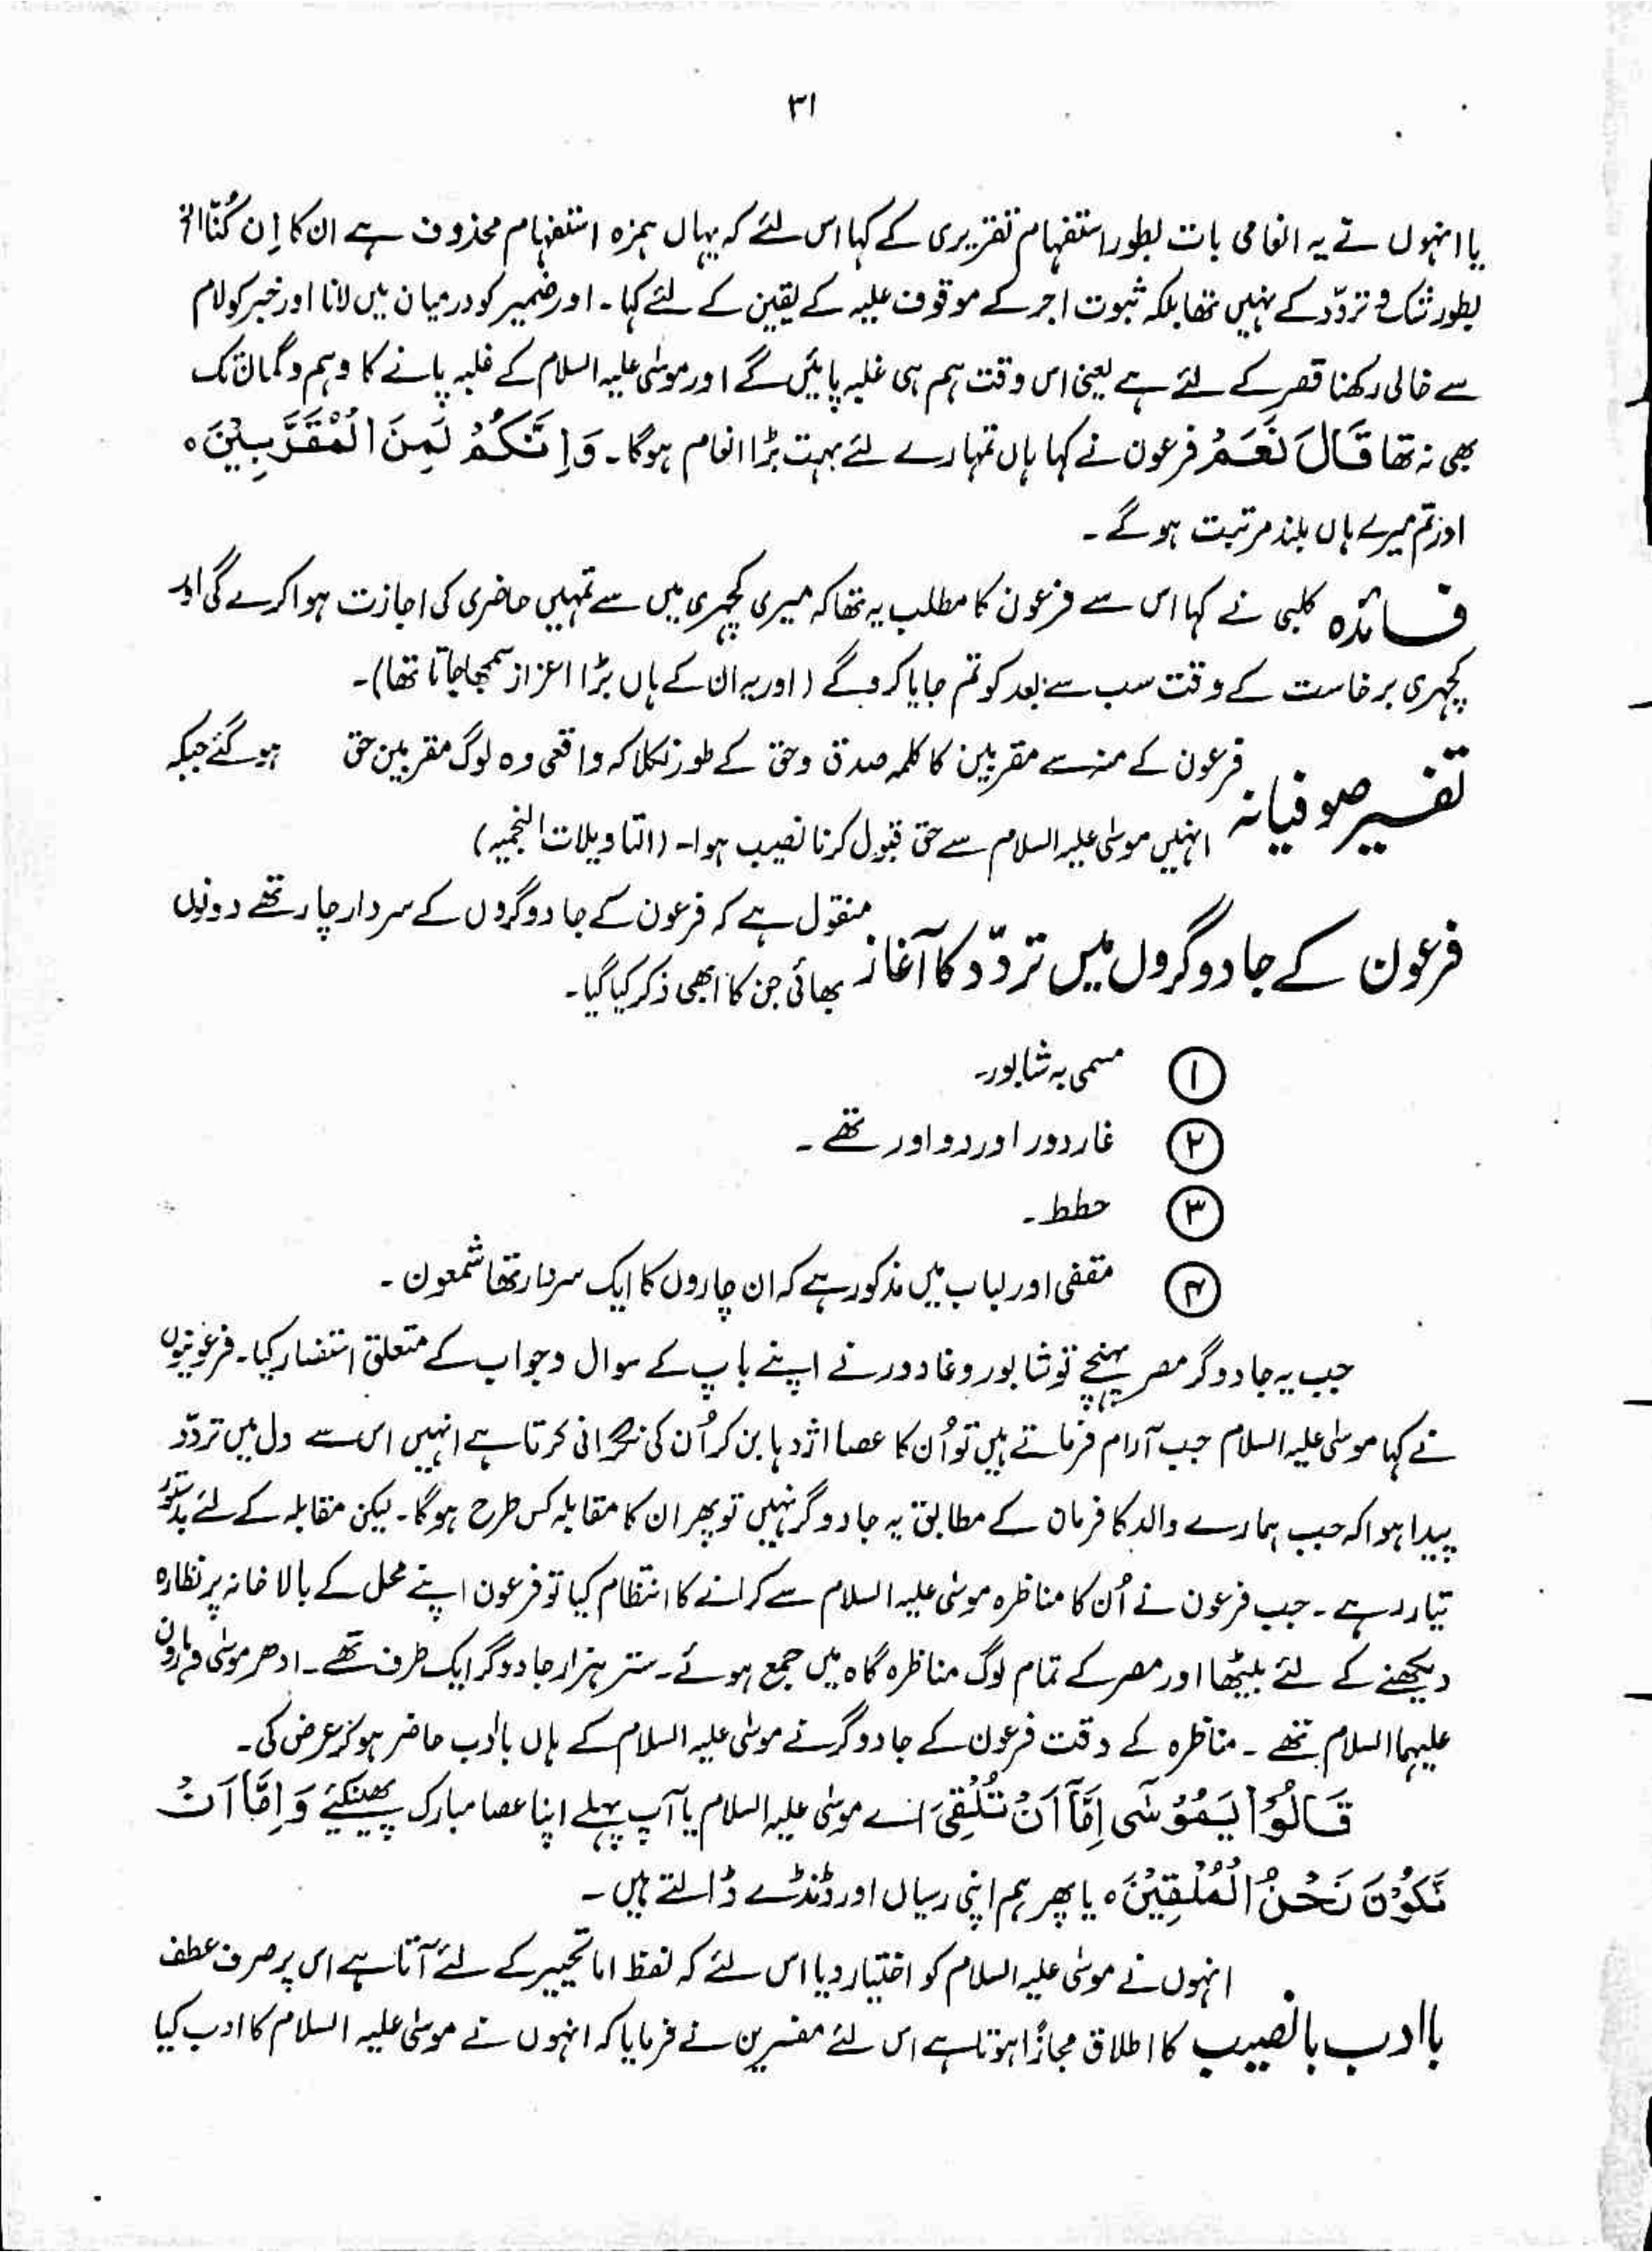 ۳۱
یا انہوں نے یہ انعامی بات بطور استفہام تقریری کے کہا اس لئے کہ یہاں ہمزہ استفہام محذوف ہے ان کا اِن کُنّا الخ
بطور شک و تردّد کے نہیں تھا بلکہ ثبوت اجر کے موقوف علیہ کے یقین کے لئے کہا۔ اور ضمیر کو درمیان میں لانا اور خبر کو لام
سے خالی رکھنا قصر کے لئے ہے یعنی اس وقت ہم ہی غلبہ پائیں گے اور موسٰی علیہ السلام کے غلبہ پانے کا وہم و گمان تک
بھی نہ تھا قَالَ نَعَمْ فرعون نے کہا ہاں تمہارے لئے بہت بڑا انعام ہوگا۔ وَاِنَّكُمْ لَمِنَ الْمُقَرَّبِيْنَ ہ
اور تم میرے ہاں بلند مرتبت ہو گے۔
فائدہ کلبی نے کہا اس سے فرعون کا مطلب یہ تھا کہ میری کچہری میں سے تمہیں حاضری کی اجازت ہوا کرے گی اور
کچہری برخاست کے وقت سب سے بعد کو تم جایا کرو گے (اور یہ ان کے ہاں بڑا اعزاز سمجھا جاتا تھا)۔
تفسیر صوفیانہ فرعون کے منہ سے مقربین کا کلمہ صدق و حق کے طور نکلا کہ واقعی وہ لوگ مقربین حق ہو گئے جبکہ
انہیں موسٰی علیہ السلام سے حق قبول کرنا نصیب ہوا۔ (التاویلات النجمیہ)
فرعون کے جادوگروں میں تردّد کا آغاز منقول ہے کہ فرعون کے جادوگروں کے سردار چار تھے دونوں
بھائی جن کا ابھی ذکر کیا گیا۔
① مسمی بہ شابور۔
② غاردور اور دو اور تھے۔
③ حطط۔
④ مقفی اور لباب میں مذکور ہے کہ ان چاروں کا ایک سردار تھا شمعون۔
جب یہ جادوگر مصر پہنچے تو شابور و غادور نے اپنے باپ کے سوال و جواب کے متعلق استفسار کیا۔ فرعونیوں
نے کہا موسٰی علیہ السلام جب آرام فرماتے ہیں تو اُن کا عصا اژدہا بن کر اُن کی نگرانی کرتا ہے انہیں اس سے دل میں تردّد
پیدا ہوا کہ جب ہمارے والد کا فرمان کے مطابق یہ جادوگر نہیں تو پھر ان کا مقابلہ کس طرح ہوگا۔ لیکن مقابلہ کے لئے بدستور
تیار رہے۔ جب فرعون نے اُن کا مناظرہ موسٰی علیہ السلام سے کرانے کا انتظام کیا تو فرعون اپنے محل کے بالا خانہ پر نظارہ
دیکھنے کے لئے بیٹھا اور مصر کے تمام لوگ مناظرہ گاہ میں جمع ہوئے۔ ستر ہزار جادوگر ایک طرف تھے۔ ادھر موسٰی و ہارون
علیہما السلام تھے۔ مناظرہ کے وقت فرعون کے جادوگر نے موسٰی علیہ السلام کے ہاں باادب حاضر ہو کر عرض کی۔
قَالُوْا يٰمُوْسٰى اِمَّآ اَنْ تُلْقِيَ اے موسٰی علیہ السلام یا آپ پہلے اپنا عصا مبارک پھینکئے وَاِمَّآ اَنْ
نَّكُوْنَ نَحْنُ الْمُلْقِيْنَ ہ یا پھر ہم اپنی رسیاں اور ڈنڈے ڈالتے ہیں۔
انہوں نے موسٰی علیہ السلام کو اختیار دیا اس لئے کہ لفظ اما تخییر کے لئے آتا ہے اس پر صرف عطف
باادب بانصیب کا اطلاق مجازًا ہوتا ہے اس لئے مفسرین نے فرمایا کہ انہوں نے موسٰی علیہ السلام کا ادب کیا